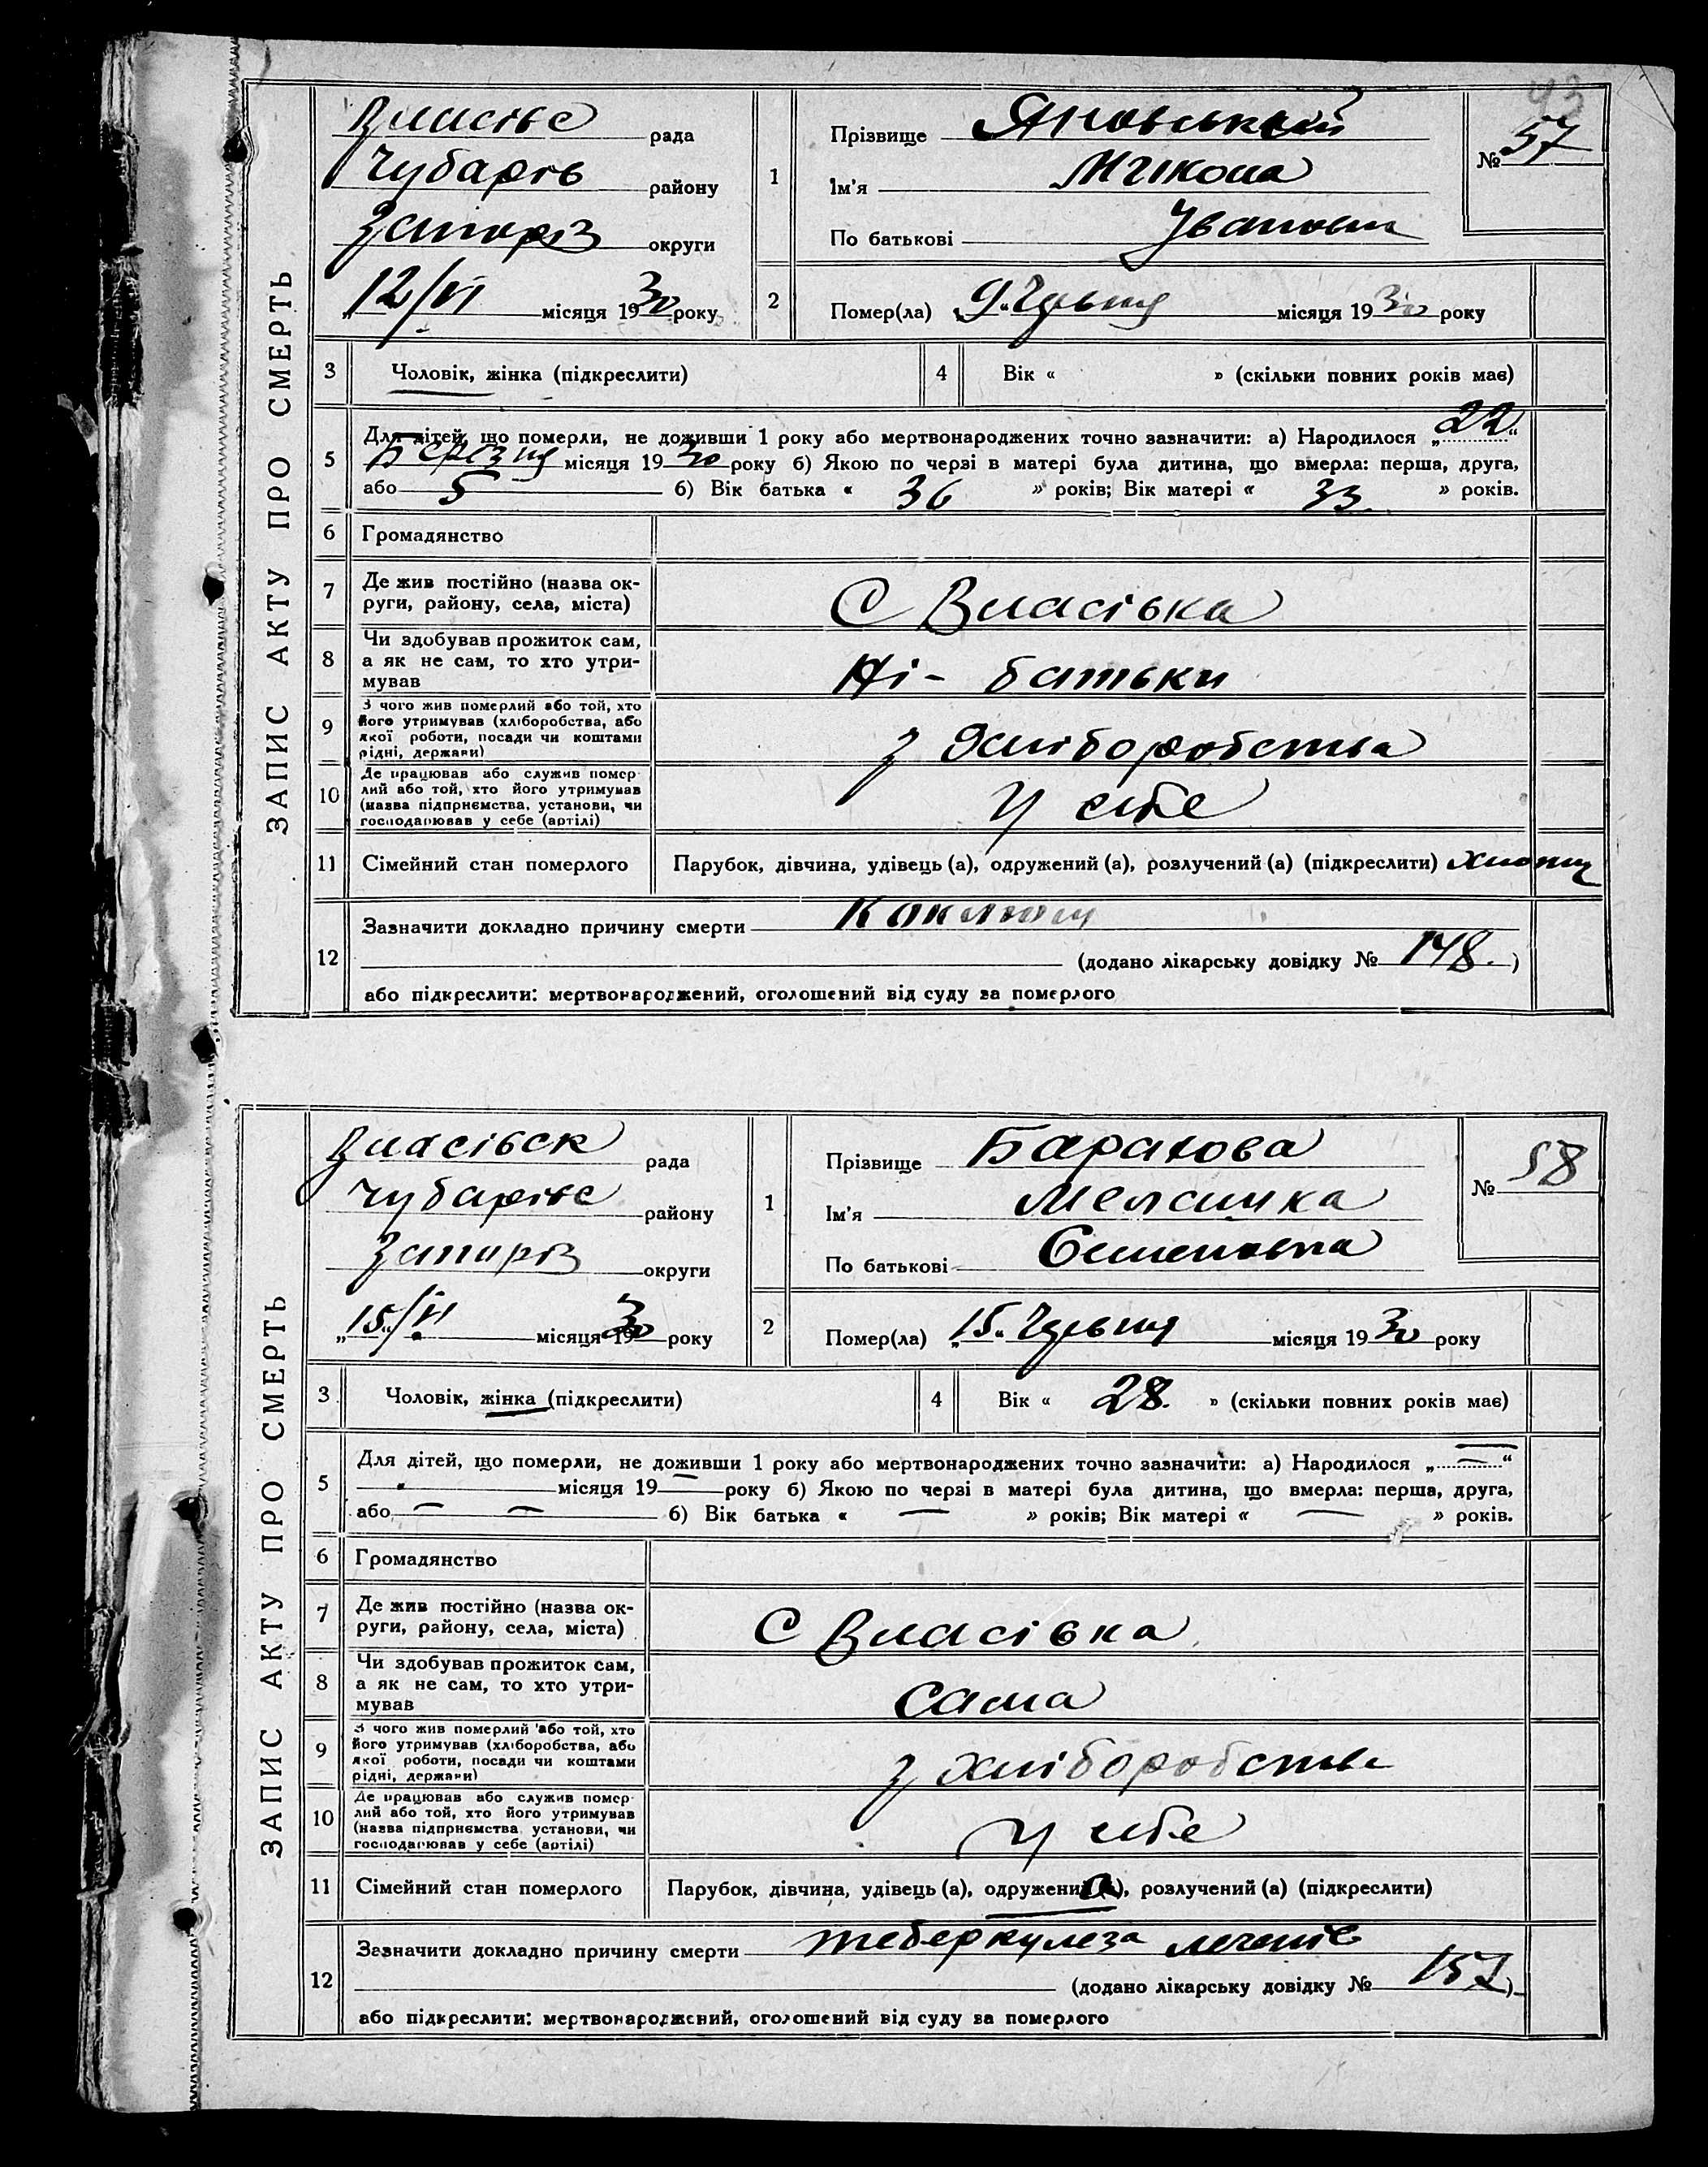 43
ЗАПИС АКТУ ПРО СМЕРТЬ
Власівс рада
Чубарів району
Запоріз округи
„12/VI місяця 1930 року
1 Прізвище Яновський
Ім'я Микола
По батькові Іванович
№ 57
2 Помер(ла) „9“ Червня місяця 1930 року
3 Чоловік, жінка (підкреслити)
4 Вік « » (скільки повних років має)
5 Для дітей, що померли, не доживши 1 року або мертвонароджених точно зазначити: а) Народилося „22“
Березня місяця 1930 року б) Якою по черзі в матері була дитина, що вмерла: перша, друга,
або 5 б) Вік батька « 36 » років; Вік матері « 33 » років.
6 Громадянство
7 Де жив постійно (назва ок-
руги, району, села, міста) С Власівка
8 Чи здобував прожиток сам,
а як не сам, то хто утри-
мував Ні - батьки
9 З чого жив померлий або той, хто
його утримував (хліборобства, або
якої роботи, посади чи коштами
рідні, держави) з хліборобства
10 Де працював або служив помер
лий або той, хто його утримував
(назва підприємства, установи, чи
господарював у себе (артілі) У себе
11 Сімейний стан померлого Парубок, дівчина, удівець (а), одружений (а), розлучений (а) (підкреслити) хлопец
12 Зазначити докладно причину смерти Коклюш
(додано лікарську довідку № 148. )
або підкреслити: мертвонароджений, оголошений від суду за померлого
ЗАПИС АКТУ ПРО СМЕРТЬ
Власівск рада
Чубарівс району
Запоріз округи
„15/VI місяця 1930 року
1 Прізвище Баранова
Ім'я
По батькові Семеновна
№ 58
2 Помер(ла) „15. Червня місяця 1930 року
3 Чоловік, жінка (підкреслити)
4 Вік « 28. » (скільки повних років має)
5 Для дітей, що померли, не доживши 1 року або мертвонароджених точно зазначити: а) Народилося „—“
місяця 19— року б) Якою по черзі в матері була дитина, що вмерла: перша, друга,
або — — б) Вік батька « — » років; Вік матері « — » років.
6 Громадянство
7 Де жив постійно (назва ок-
руги, району, села, міста) С Власівка
8 Чи здобував прожиток сам,
а як не сам, то хто утри-
мував сама
9 З чого жив померлий або той, хто
його утримував (хліборобства, або
якої роботи, посади чи коштами
рідні, держави) з хліборобства
10 Де працював або служив помер
лий або той, хто його утримував
(назва підприємства, установи, чи
господарював у себе (артілі) У себе
11 Сімейний стан померлого Парубок, дівчина, удівець (а), одружений (а), розлучений (а) (підкреслити)
12 Зазначити докладно причину смерти теберкулеза легенів
(додано лікарську довідку № 157)
або підкреслити: мертвонароджений, оголошений від суду за померлого